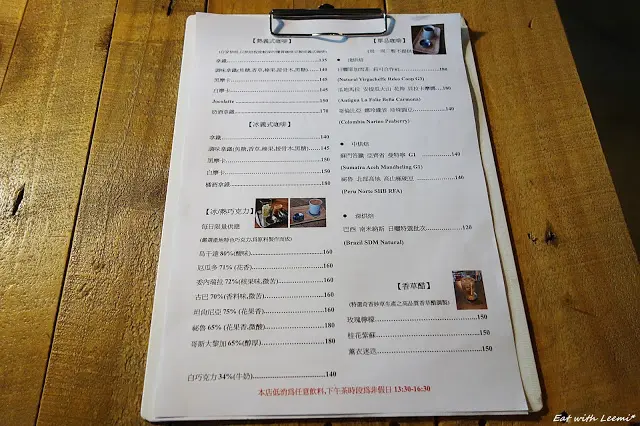 【熱義式咖啡】
拿鐵 135
調味拿鐵(焦糖,香草,榛果,接骨木,黑糖) 145
黑摩卡 145
白摩卡 145
Jocolatte 150
奶酒拿鐵 170
【冰義式咖啡】
拿鐵 140
調味拿鐵(焦糖,香草,榛果,接骨木,黑糖) 145
黑摩卡 150
白摩卡 150
橘酒拿鐵 180
【冰/熱巧克力】
每日限量供應
烏干達 80%(酸味) 160
厄瓜多 71% (花香) 160
委內瑞拉 72%(核果味,微苦) 160
古巴 70%(香料味,微苦) 160
坦尚尼亞 75% (花果香) 160
祕魯 65% (花果香,微酸) 180
哥斯大黎加 65%(醇厚) 180
白巧克力 34%(牛奶) 140
【單品咖啡】
● 淺烘焙
(Natural Yirgacheffe Reko Coop G3)
(Antigua La Folie Bella Carmona)
(Colombia Narino Peaberry)
● 中烘焙
蘇門答臘 亞齊省 曼特寧 G1 140
(Sumatra Aceh Mandheling G1)
祕魯 北部高地 高山蘇碇豆 140
(Peru Norte SHB RFA)
● 深烘焙
巴西 南米納斯 日曬特選批次 120
(Brazil SDM Natural)
【香草醋】
玫瑰檸檬 150
桂花紫蘇 150
薰衣迷迭 150
本店低消為任意飲料,下午茶時段為非假日 13:30-16:30
Eat with Leemi*